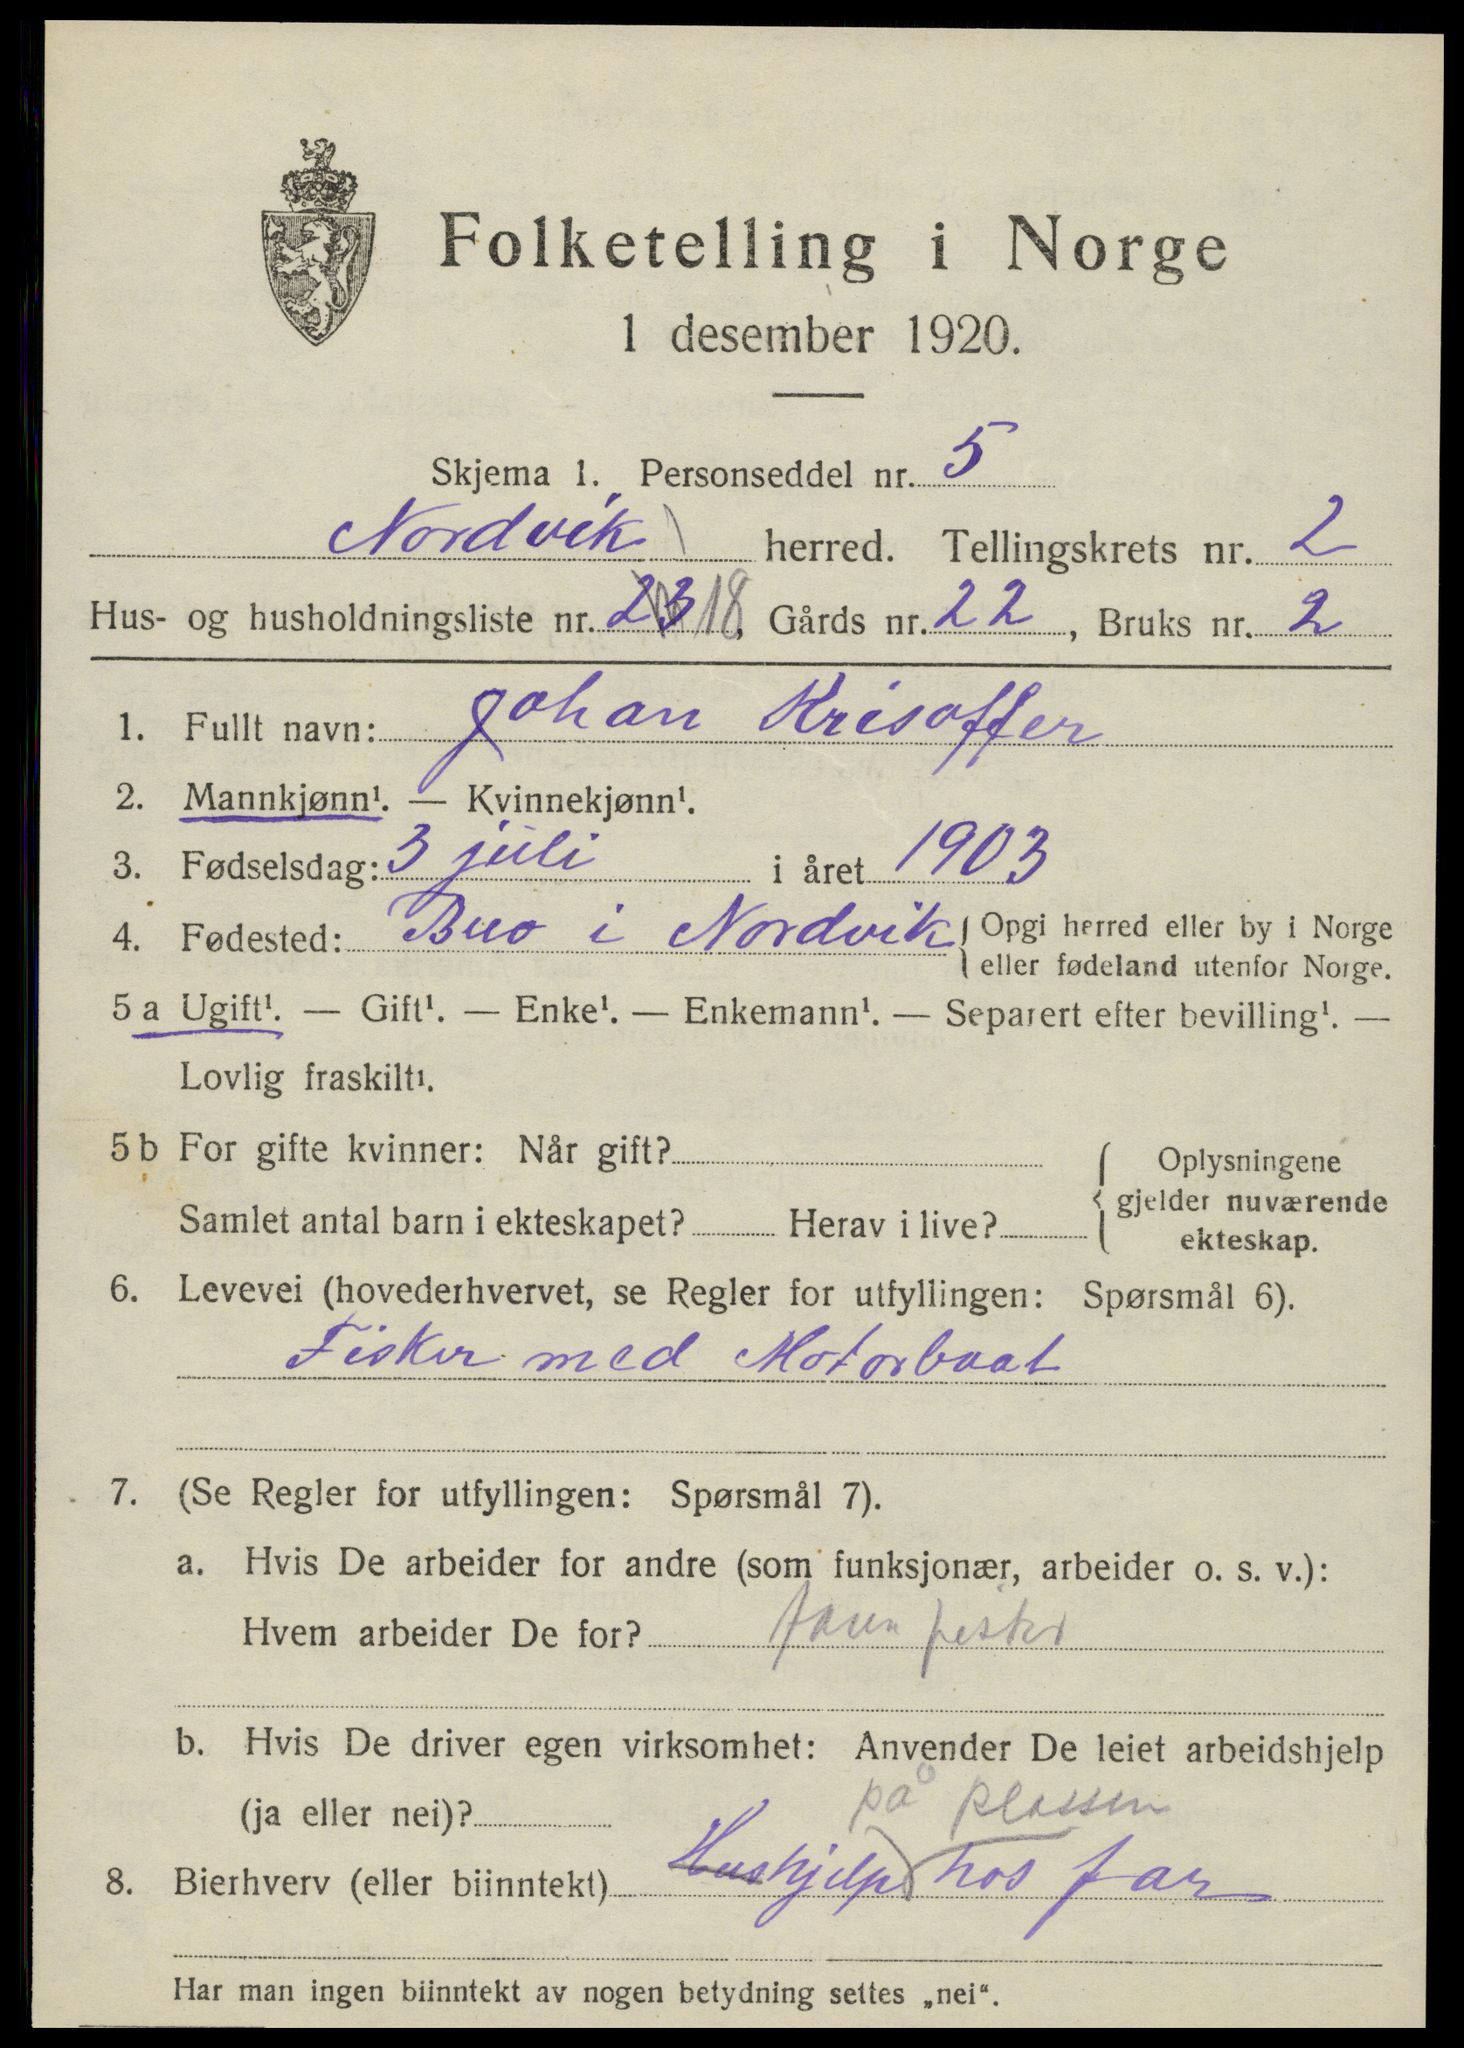 Folketelling i Norge
1 desember 1920.
Skjema 1. Personseddel nr. 5
Nordvik herred. Tellingskrets nr. 2
Hus- og husholdningsliste nr. 23 18, Gårds nr. 22, Bruks nr. 2
1. Fullt navn: Johan Krisoffer
2. Mannkjønn¹. — Kvinnekjønn¹.
3. Fødselsdag: 3 juli i året 1903
4. Fødested: Buo i Nordvik { Opgi herred eller by i Norge
eller fødeland utenfor Norge.
5 a Ugift¹. — Gift¹. — Enke¹. — Enkemann¹. — Separert efter bevilling¹. —
Lovlig fraskilt¹.
5 b For gifte kvinner: Når gift?
Samlet antal barn i ekteskapet? Herav i live?
{ Oplysningene
gjelder nuværende
ekteskap.
6. Levevei (hovederhvervet, se Regler for utfyllingen: Spørsmål 6).
Fisker med Motorbaat
7. (Se Regler for utfyllingen: Spørsmål 7).
a. Hvis De arbeider for andre (som funksjonær, arbeider o. s. v.):
Hvem arbeider De for? fisker
b. Hvis De driver egen virksomhet: Anvender De leiet arbeidshjelp
(ja eller nei)?
på plassen
8. Bierhverv (eller biinntekt) Hushjelp hos far
Har man ingen biinntekt av nogen betydning settes „nei“.